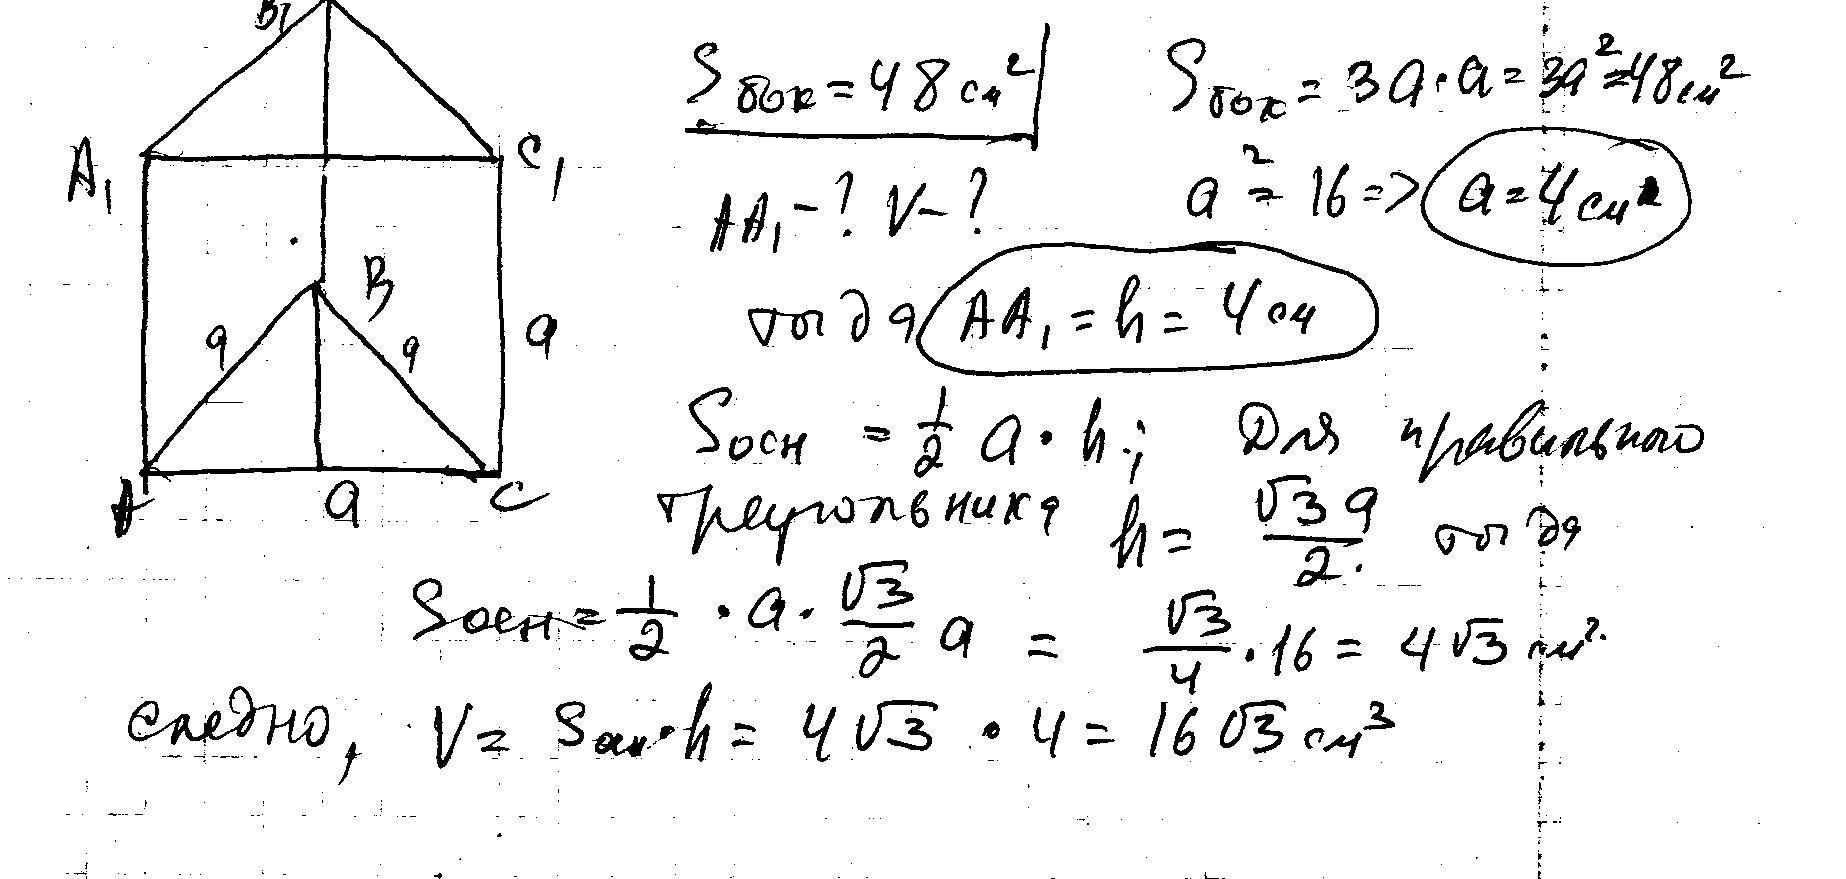 B₁
A₁
C₁
B
a
a
a
A
a
C
Sбок = 48 см²
AA₁ - ? V - ?
Sбок = 3a·a = 3a² = 48 см²
a² = 16 => a = 4 см
тогда AA₁ = h = 4 см
Sосн = 1/2 a · h; Для правильного
треугольника h = √3a/2. тогда
Sосн = 1/2 · a · √3/2 a = √3/4 · 16 = 4√3 см²
следно, V = Sосн · h = 4√3 · 4 = 16√3 см³